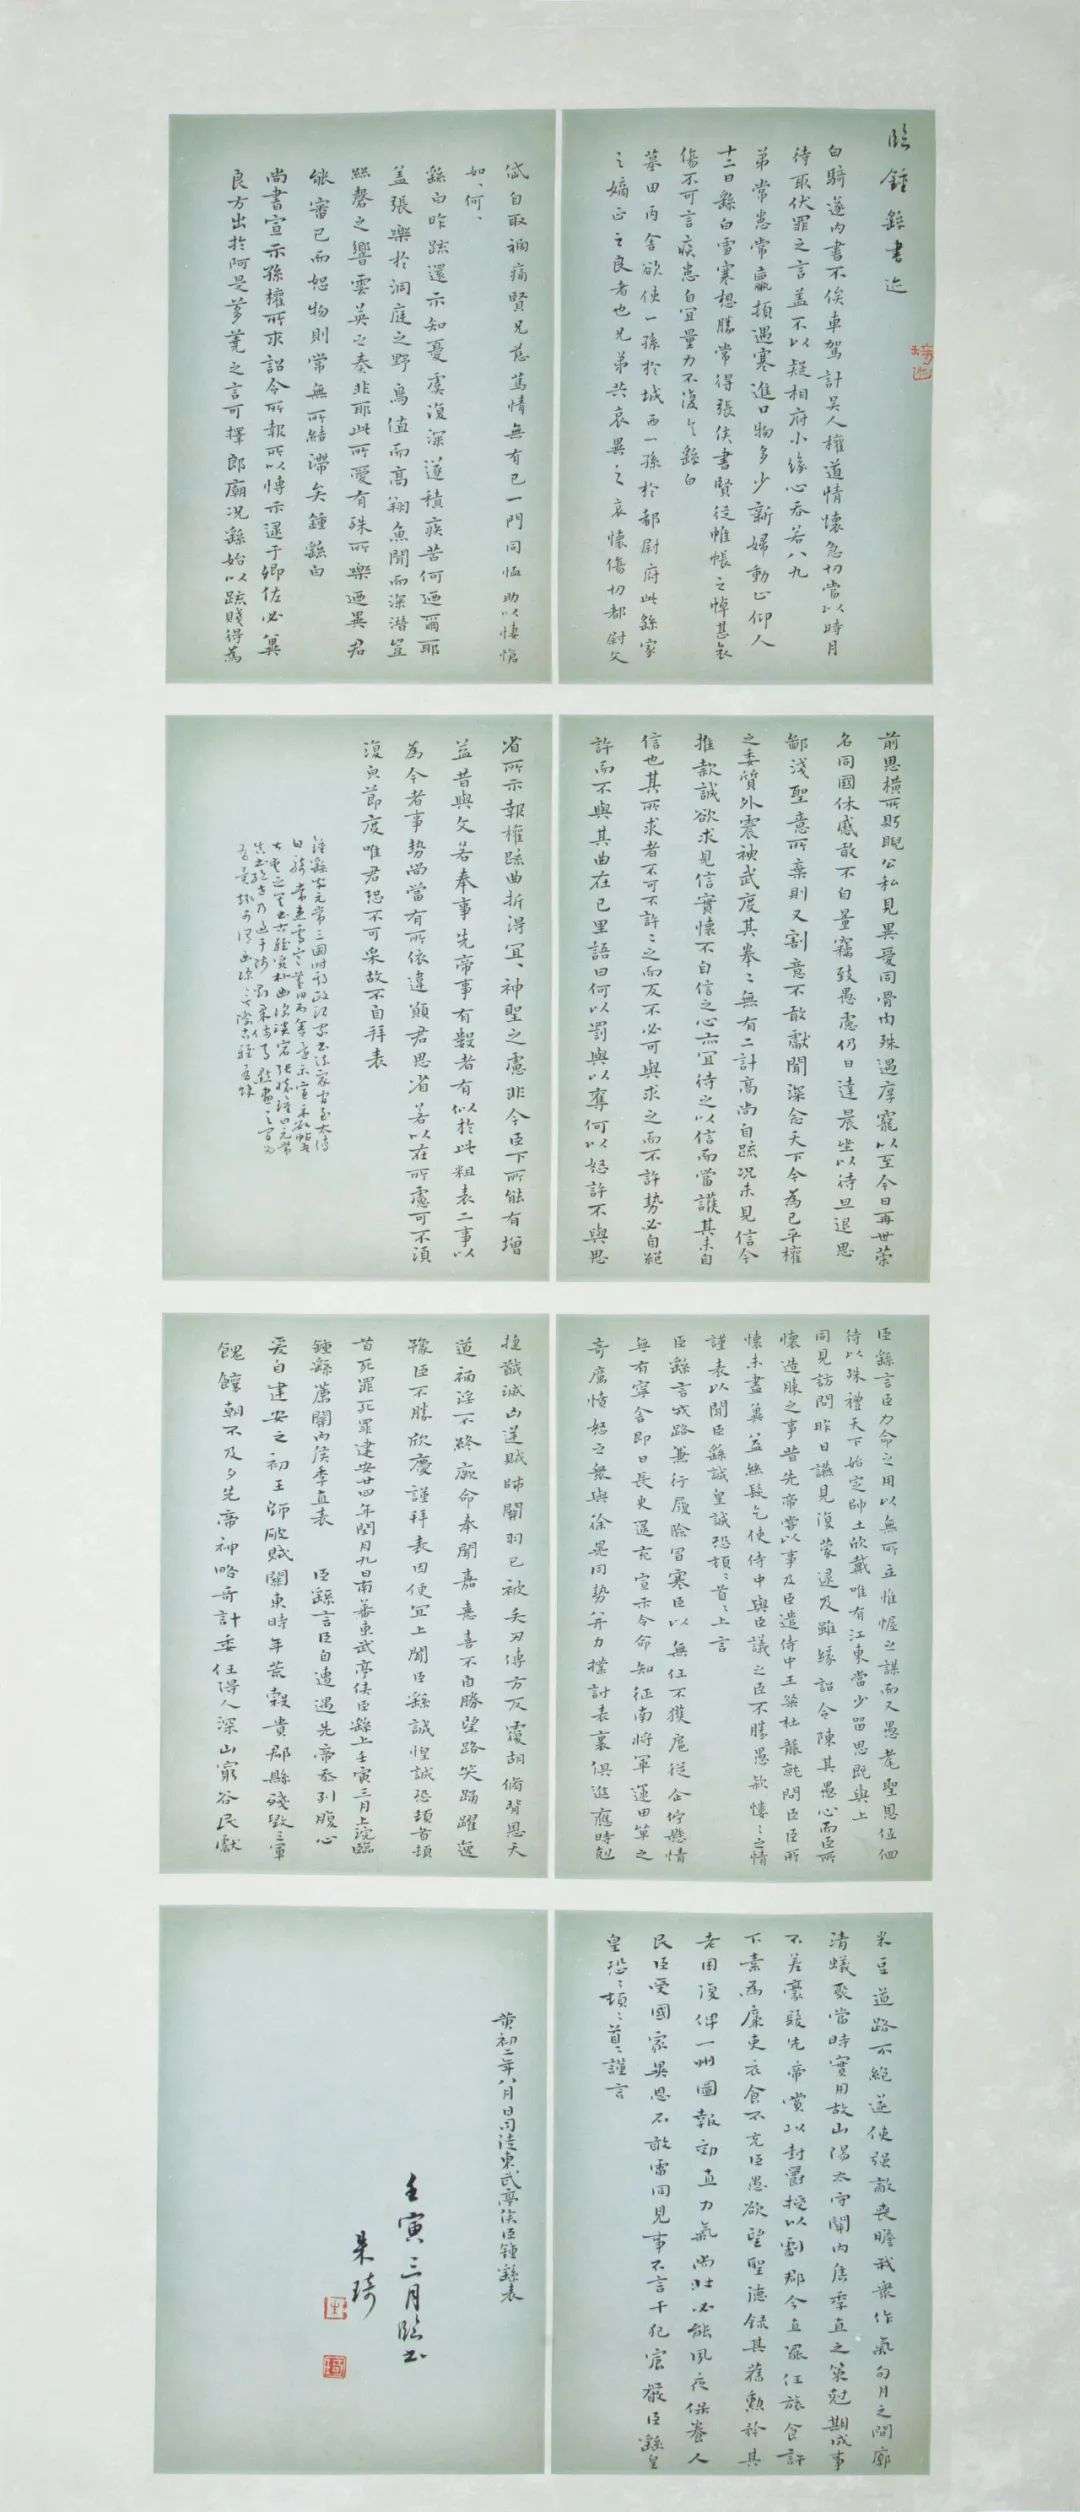 临锺繇書迹
白騎遂内書不俟車駕計吴人權道情懷急切當以時月
待取伏罪之言蓋不以疑相府小緣心吞若八九
弟常患常羸頓遇寒進口物多少新婦動止仰人
十二日繇白雪寒想勝常得張侯書賢從帷帳之悼甚哀
傷不可言疾患自宜量力不復々繇白
墓田丙舍欲使一孫於城西一孫於都尉府此繇家
之嫡正之良者也兄弟共哀異之哀懷傷切都尉文
岱自取禍痛賢兄慈篤情無有已一門同恤助以悽愴
如、何、
繇白昨疏還示知憂虞復深遂積疾苦何迺爾耶
蓋張樂於洞庭之野鳥值而高翔魚聞而深潛豈
絲磬之響雲英之奏非耶此所愛有殊所樂迺異君
能審己而恕物則常無所結滯矣鍾繇白
尚書宣示孫權所求詔令所報所以博示逮于卿佐必冀
良方出於阿是芻蕘之言可擇郎廟况繇始以疏賤得為
前恩橫所盻睨公私見異愛同骨肉殊遇厚寵以至今日再世榮
名同國休慼敢不自量竊致愚慮仍日達晨坐以待旦退思
鄙淺聖意所棄則又割意不敢獻聞深念天下今為已平權
之委質外震神武度其拳々無有二計高尚自疏况未見信今
推款誠欲求見信實懷不自信之心亦宜待之以信而當護其未自
信也其所求者不可不許々之而反不必可與求之而不許勢必自絕
許而不與其曲在己里語曰何以罰與以奪何以怒許不與思
省所示報權疏曲折得宜、神聖之慮非今臣下所能有增
益昔與文若奉事先帝事有數者有似於此粗表二事以
為今者事勢尚當有所依違願君思省若以在所慮可不須
復皃節度唯君恐不可采故不自拜表
臣繇言臣力命之用以無所立惟幄之謀而又愚耄聖恩低徊
待以殊禮天下始定帥土欣戴唯有江東當少留思既與上
同見訪問昨日讌見復蒙逮及雖緣詔令陳其愚心而臣所
懷造膝之事昔先帝嘗以事及臣遣侍中王粲杜襲就問臣臣所
懷未盡冀益絲髮乞使侍中與臣議之臣不勝愚款慺々之情
謹表以聞臣繇誠皇誠恐頓々首々上言
臣繇言戎路兼行履險冒寒臣以無任不獲扈從企佇懸情
無有寧舍即日長史逯充宣示令命知征南將軍運田單之
奇厲憤怒之眾與徐晃同勢并力撲討表裏俱進應時剋
捷馘滅凶逆賊帥關羽已被矢刃傅方反覆胡脩背恩天
道禍淫不終厥命奉聞嘉憙喜不自勝望路笑踊躍逸
豫臣不勝欣慶謹拜表因便宜上聞臣繇誠惶誠恐頓首頓
首死罪死罪建安廿四年閏月九日南蕃東武亭侯臣繇上壬寅三月上浣臨
鍾繇薦關内侯季直表　臣繇言臣自遭遇先帝忝列腹心
爰自建安之初王師破賊關東時年荒穀貴郡縣殘毀三軍
餽饟朝不及夕先帝神略奇計委任得人深山窮谷民獻
米豆道路不絕遂使强敵喪膽我眾作氣旬月之間廓
清蟻聚當時實用故山陽太守關内侯季直之策剋期成事
不差豪髮先帝賞以封爵授以劇郡今直罷任旅食許
下素為廉吏衣食不充臣愚欲望聖德錄其舊勳矜其
老困復俾一州圖報効直力氣尚壯必能夙夜保養人
民臣受國家異恩不敢雷同見事不言干犯宸嚴臣繇皇
皇恐々頓々首々謹言
黄初二年八月日司徒東武亭侯臣鍾繇表
壬寅三月臨書
朱琦